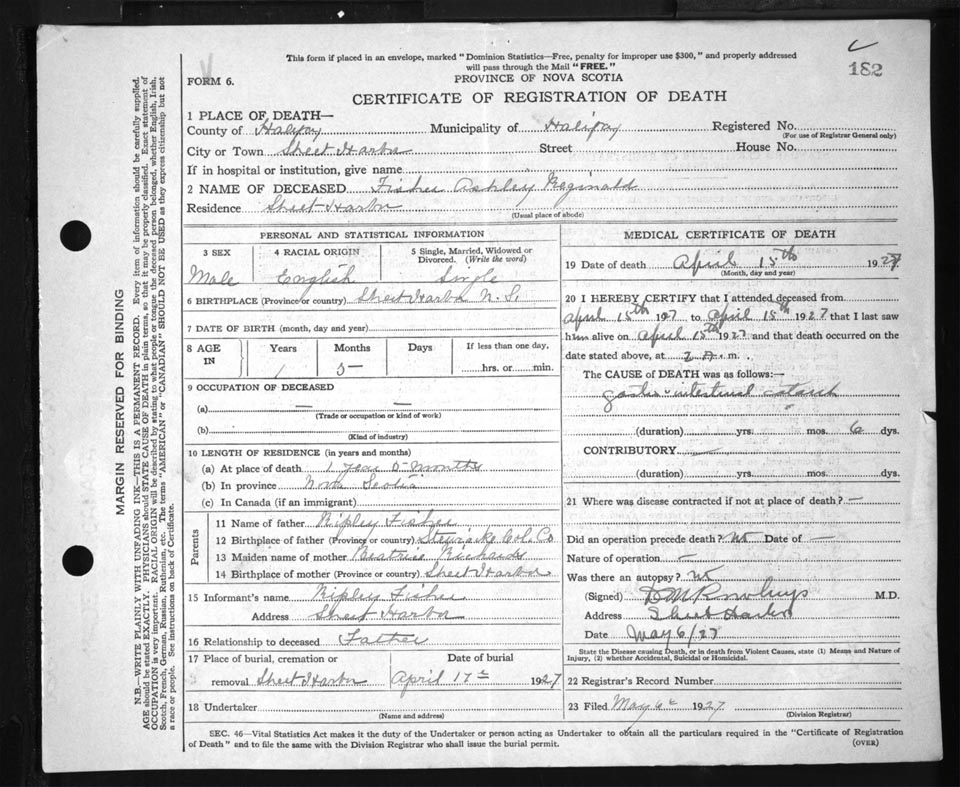 This form if placed in an envelope, marked "Dominion Statistics—Free, penalty for improper use $300," and properly addressed
will pass through the Mail "FREE."
182
FORM 6.
PROVINCE OF NOVA SCOTIA
CERTIFICATE OF REGISTRATION OF DEATH
1 PLACE OF DEATH—
County of Halifax Municipality of Halifax Registered No.
(For use of Registrar General only)
City or Town Sheet Harbor Street House No.
If in hospital or institution, give name
2 NAME OF DECEASED Fisher Ashley Reginald
Residence Sheet Harbor
(Usual place of abode)
PERSONAL AND STATISTICAL INFORMATION
3 SEX 4 RACIAL ORIGIN 5 Single, Married, Widowed or
Divorced. (Write the word)
Male English Single
6 BIRTHPLACE (Province or country) Sheet Harbor N.S.
7 DATE OF BIRTH (month, day and year)
8 AGE IN Years Months Days If less than one day,
1 5 hrs. or min.
9 OCCUPATION OF DECEASED
(a) — —
(Trade or occupation or kind of work)
(b)
(Kind of industry)
10 LENGTH OF RESIDENCE (in years and months)
(a) At place of death 1 year 5 months
(b) In province Nova Scotia
(c) In Canada (if an immigrant)
Parents
11 Name of father Ripley Fisher
12 Birthplace of father (Province or country) Stewiacke Col. Co
13 Maiden name of mother Beatrice Richards
14 Birthplace of mother (Province or country) Sheet Harbor
15 Informant's name Ripley Fisher
Address Sheet Harbor
16 Relationship to deceased Father
17 Place of burial, cremation or Date of burial
removal Sheet Harbor April 17th 1927
18 Undertaker
(Name and address)
MEDICAL CERTIFICATE OF DEATH
19 Date of death April 15th 1927
(Month, day and year)
20 I HEREBY CERTIFY that I attended deceased from
April 15th 1927 to April 15th 1927 that I last saw
him alive on April 15th 1927 and that death occurred on the
date stated above, at m.
The CAUSE OF DEATH was as follows:—
gastro-intestinal catarrh
(duration) yrs. mos. 6 dys.
CONTRIBUTORY —
(duration) yrs. mos. dys.
21 Where was disease contracted if not at place of death? —
Did an operation precede death? No Date of —
Nature of operation —
Was there an autopsy? No
(Signed) M.D.
Address Sheet Harbor
Date May 6/27
State the Disease causing Death, or in death from Violent Causes, state (1) Means and Nature of
Injury, (2) whether Accidental, Suicidal or Homicidal.
22 Registrar's Record Number
23 Filed May 6th 1927
(Division Registrar)
SEC. 46—Vital Statistics Act makes it the duty of the Undertaker or person acting as Undertaker to obtain all the particulars required in the "Certificate of Registration
of Death" and to file the same with the Division Registrar who shall issue the burial permit. (OVER)
MARGIN RESERVED FOR BINDING
N.B.—WRITE PLAINLY WITH UNFADING INK—THIS IS A PERMANENT RECORD. Every item of information should be carefully supplied.
AGE should be stated EXACTLY. PHYSICIANS should STATE CAUSE OF DEATH in plain terms, so that it may be properly classified. Exact statement of
OCCUPATION is very important. RACIAL ORIGIN will be described by stating to what people or tongue the deceased person belonged, whether English, Irish,
Scotch, French, German, Russian, Ruthenian, etc. The terms "AMERICAN" or "CANADIAN" SHOULD NOT BE USED as they express citizenship but not
a race or people. See instructions on back of Certificate.